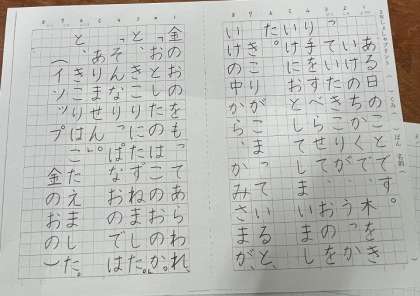 ある日のことです。
いけのちかくで、木をき
っていたきこりが、うっか
り手をすべらせて、おのを
いけにおとしてしまいまし
た。
きこりがこまっていると、
いけの中からかみさまが、
金のおのをもってあらわれ、
「おとしたのは、このおのか。」
と、きこりにたずねました。
「そんなにりっぱなおのでは
ありません。」
と、きこりはこたえました。
（イソップ「金のおの」